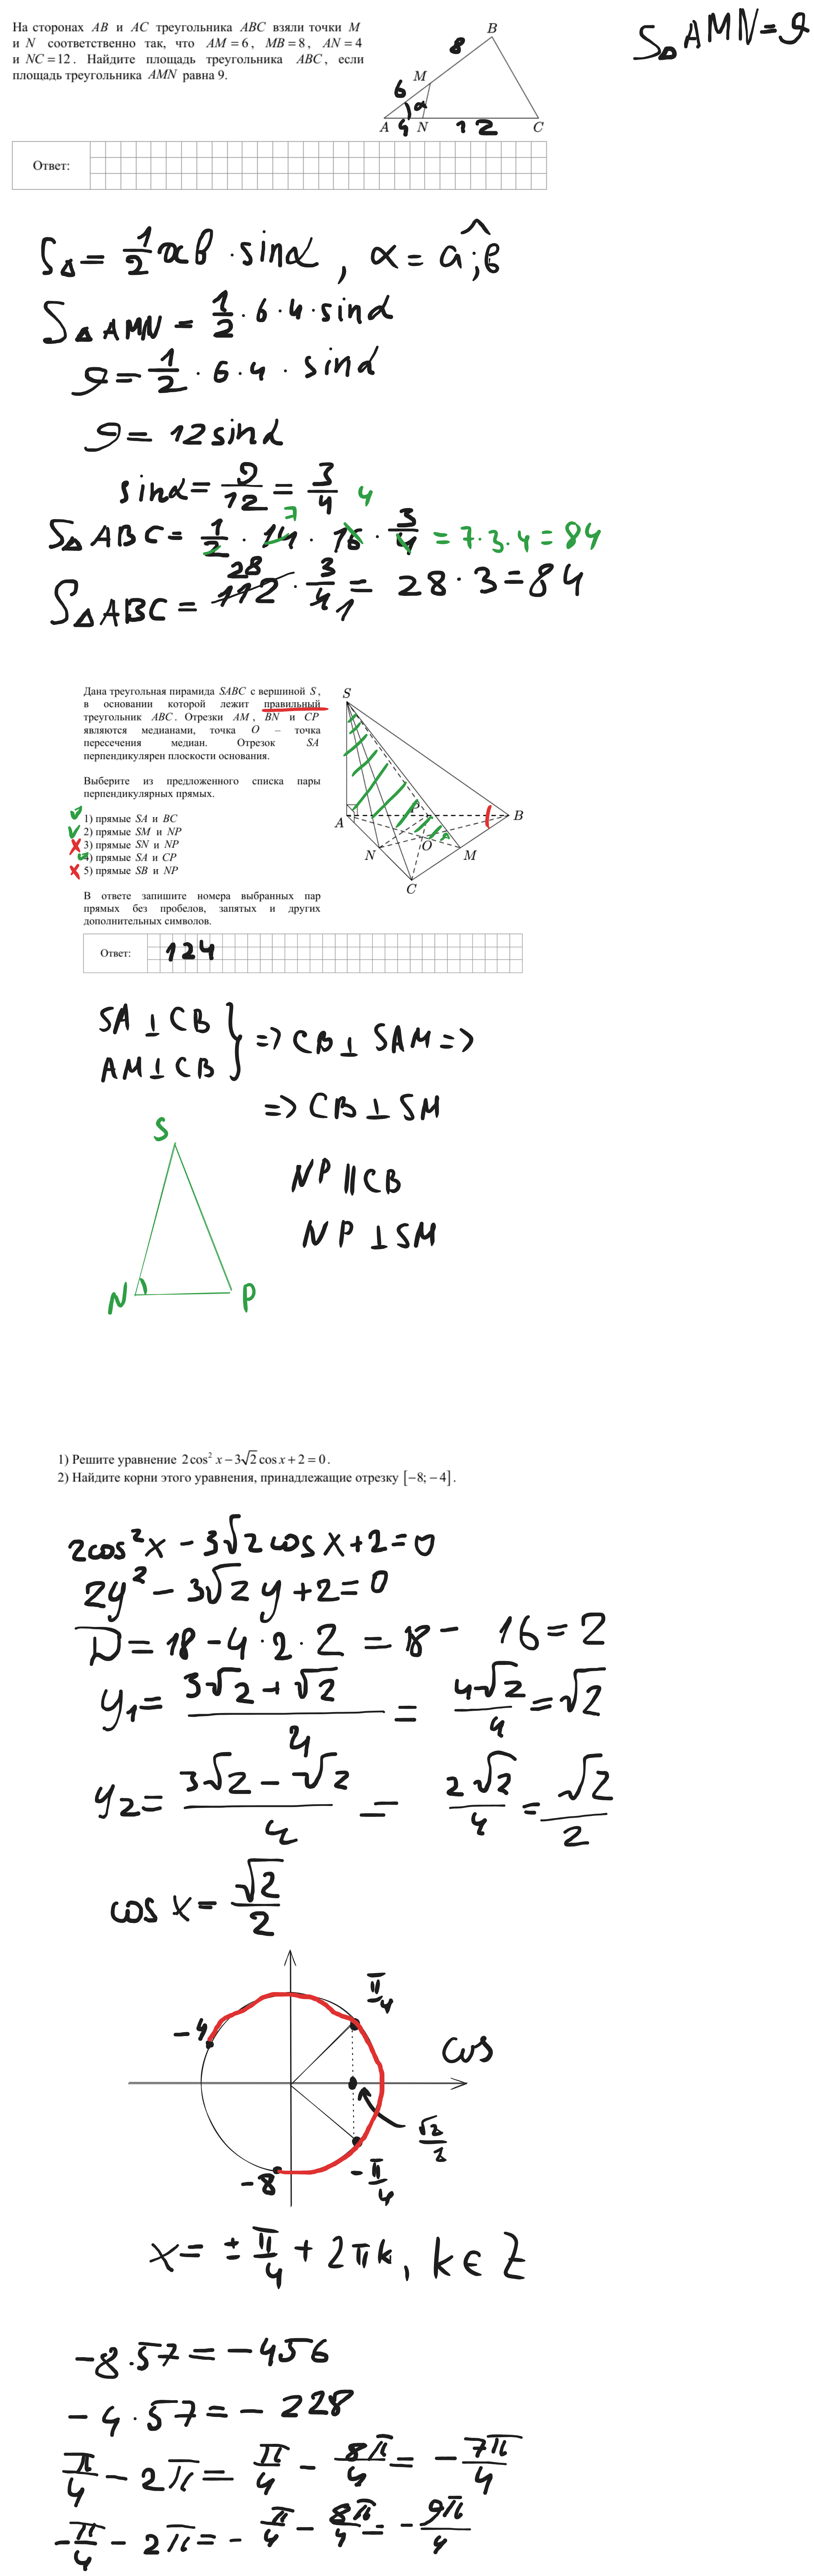 На сторонах AB и AC треугольника ABC взяли точки M
и N соответственно так, что AM = 6, MB = 8, AN = 4
и NC = 12. Найдите площадь треугольника ABC, если
площадь треугольника AMN равна 9.
B
8
M
6
α
A 4 N 12 C
S△AMN = 9
Ответ:
S△ = 1/2 ab · sinα, α = a^;b
S△AMN = 1/2 · 6 · 4 · sinα
9 = 1/2 · 6 · 4 · sinα
9 = 12 sinα
sinα = 9/12 = 3/4
7 4
S△ABC = 1/2 · 14 · 16 · 3/4 = 7·3·4 = 84
28
S△ABC = 112 · 3/4 1 = 28 · 3 = 84
Дана треугольная пирамида SABC с вершиной S,
в основании которой лежит правильный
треугольник ABC. Отрезки AM, BN и CP
являются медианами, точка O – точка
пересечения медиан. Отрезок SA
перпендикулярен плоскости основания.
Выберите из предложенного списка пары
перпендикулярных прямых.
1) прямые SA и BC
2) прямые SM и NP
3) прямые SN и NP
4) прямые SA и CP
5) прямые SB и NP
В ответе запишите номера выбранных пар
прямых без пробелов, запятых и других
дополнительных символов.
S
P
A B
O
N M
C
Ответ: 124
SA ⊥ CB
AM ⊥ CB } => CB ⊥ SAM =>
=> CB ⊥ SM
NP || CB
NP ⊥ SM
S
N P
1) Решите уравнение 2cos² x − 3√2 cos x + 2 = 0.
2) Найдите корни этого уравнения, принадлежащие отрезку [−8; −4].
2cos²x − 3√2 cos x + 2 = 0
2y² − 3√2 y + 2 = 0
D = 18 − 4 · 2 · 2 = 18 − 16 = 2
y₁ = (3√2 + √2)/4 = 4√2/4 = √2
y₂ = (3√2 − √2)/4 = 2√2/4 = √2/2
cos x = √2/2
π/4
−4
cos
√2/2
−8
−π/4
x = ± π/4 + 2πk, k ∈ Z
−8 · 57 = −456
−4 · 57 = −228
π/4 − 2π = π/4 − 8π/4 = −7π/4
−π/4 − 2π = −π/4 − 8π/4 = −9π/4